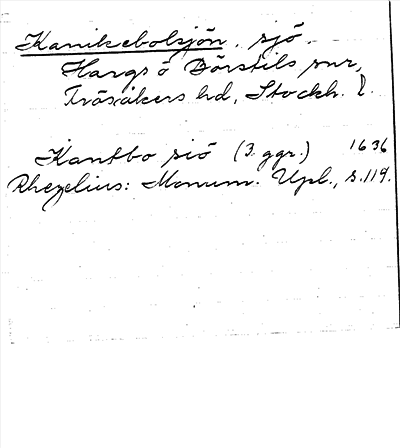 Kanikebolsjön. sjö.
Hargs o Börstils snr,
Frösåkers hd, Stockh. l.
Kantbo siö (3 ggr.) 1636
Rhezelius: Monum. Upl., s. 119.